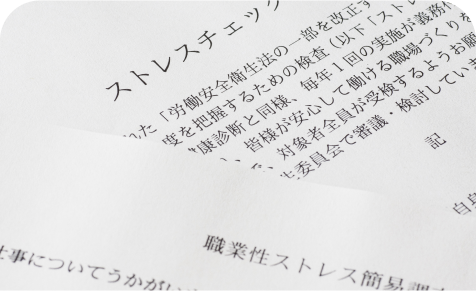 ストレスチェック
た「労働安全衛生法の一部を改正す
度を把握するための検査（以下「ストレ
康診断と同様、毎年1回の実施が義務付
皆様が安心して働ける職場づくりを
対象者全員が受検するようお願
委員会で審議・検討していま
記
職業性ストレス簡易調
仕事についてうかがい